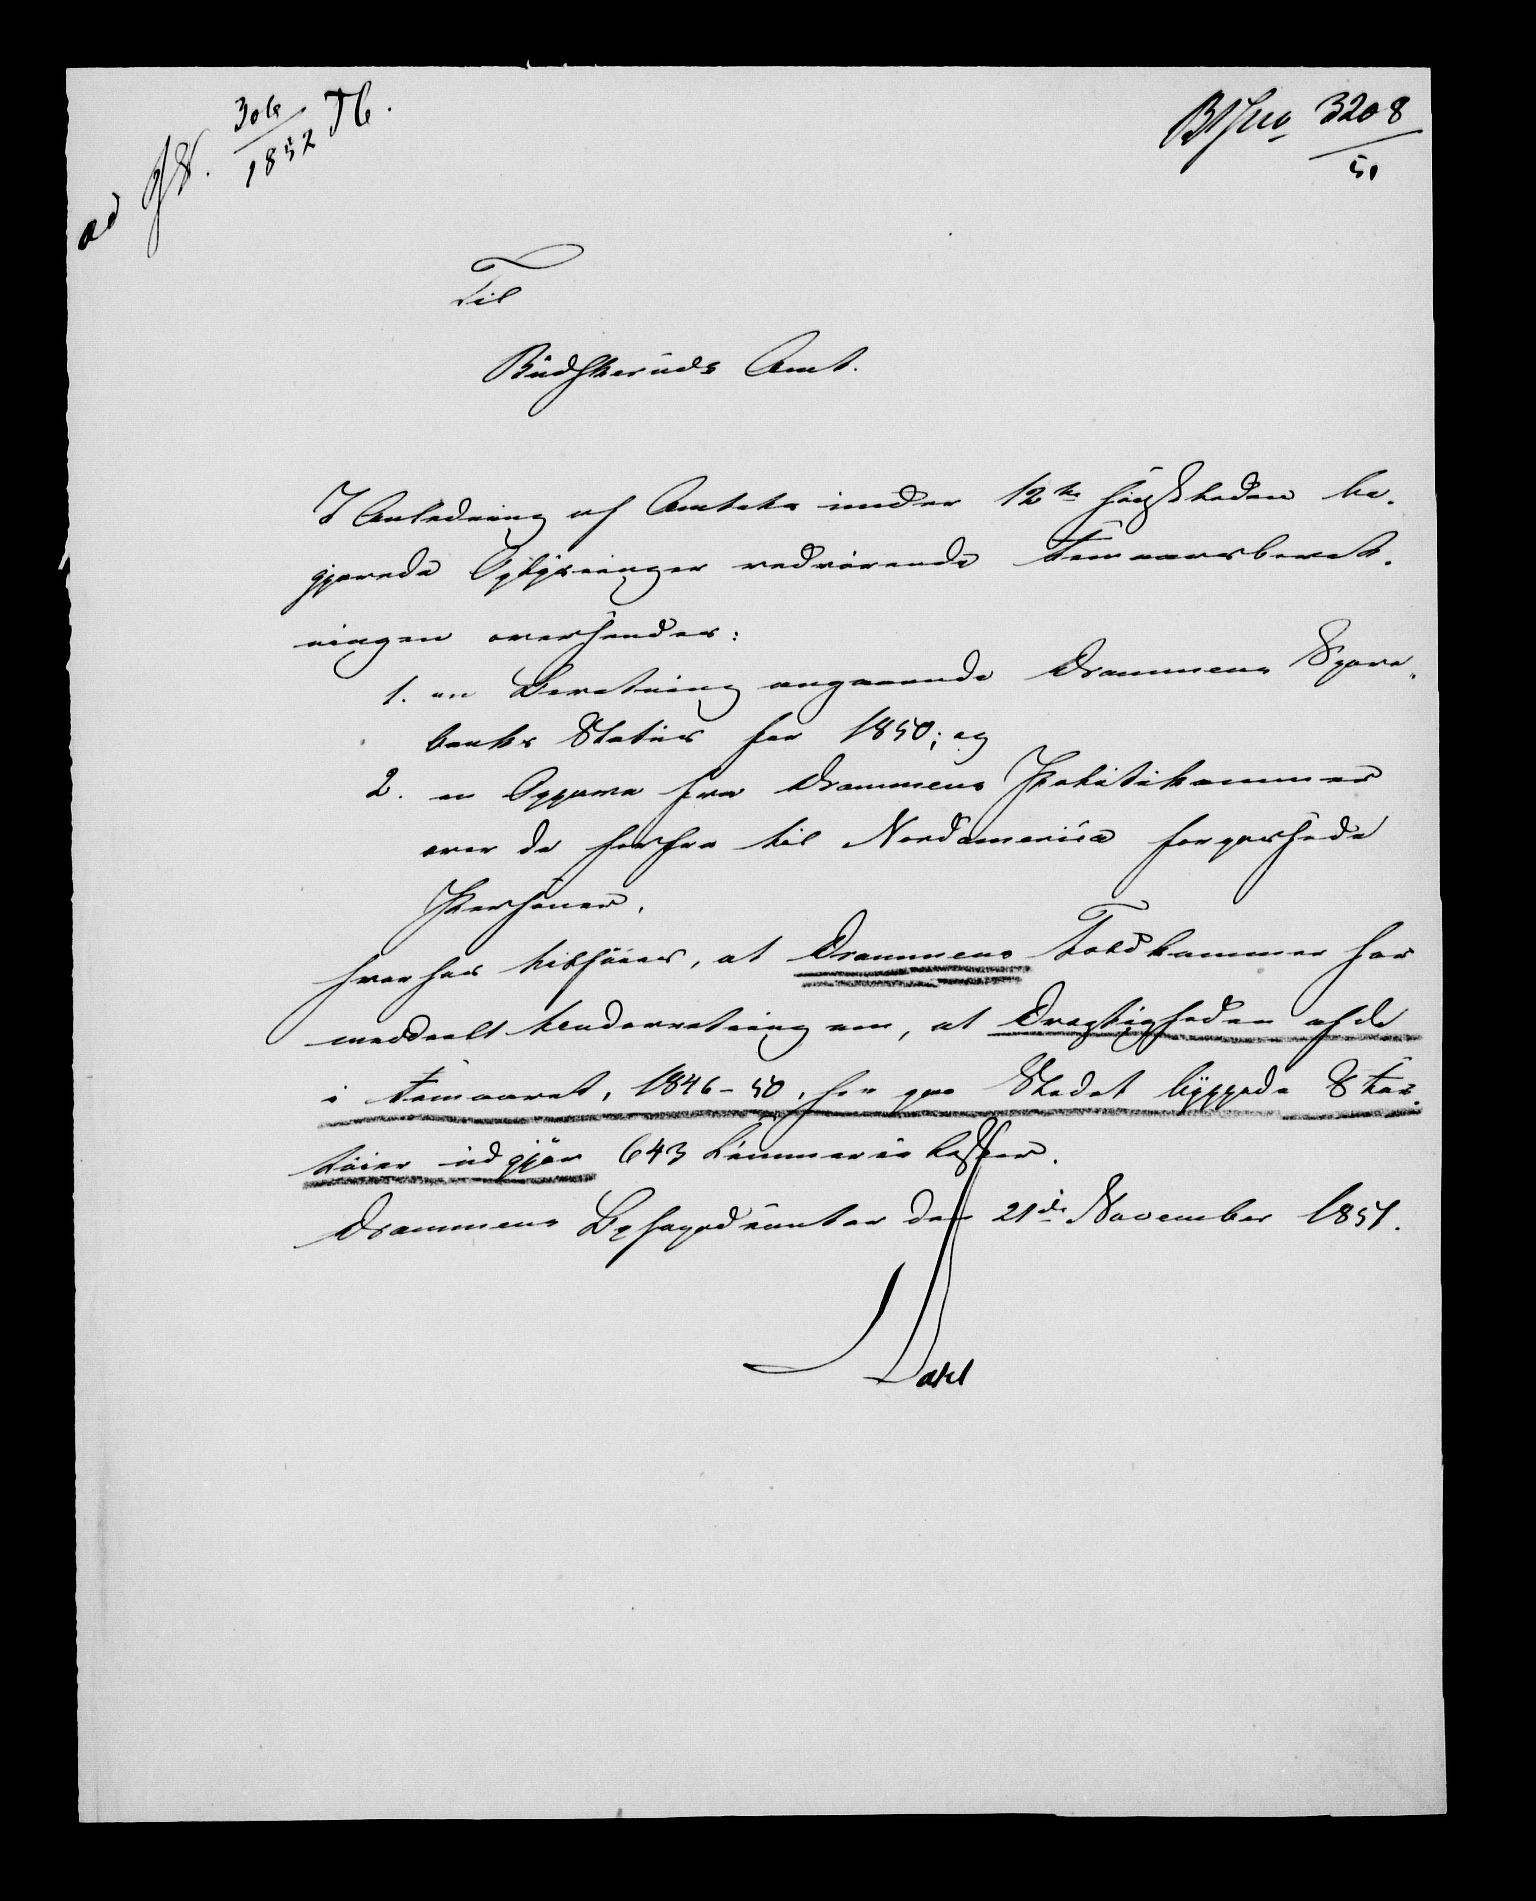 ad JN. 306/1852 Tb.
3208/51
Til
Budskeruds Amt.
I Anledning af Amtets under 12te sidstleden be-
gjærede Oplysninger vedrørende Femaarsberet-
ningen oversendes:
1. en Beretning angaaende Drammens Spare-
banks Status for 1850; og
2. en Opgave fra Drammens Politikammer
over de herfra til Nordamerica forpassede
Personer,
hvorhos tilføies, at Drammens Toldkammer har
meddeelt Underretning om, at Drægtigheden af de
i Femaaret, 1846-50, her paa Stedet byggede Skar-
tøier udgjør 643 Commercelæster.
Drammens Byfogedcontor den 21de November 1851.
Dahl